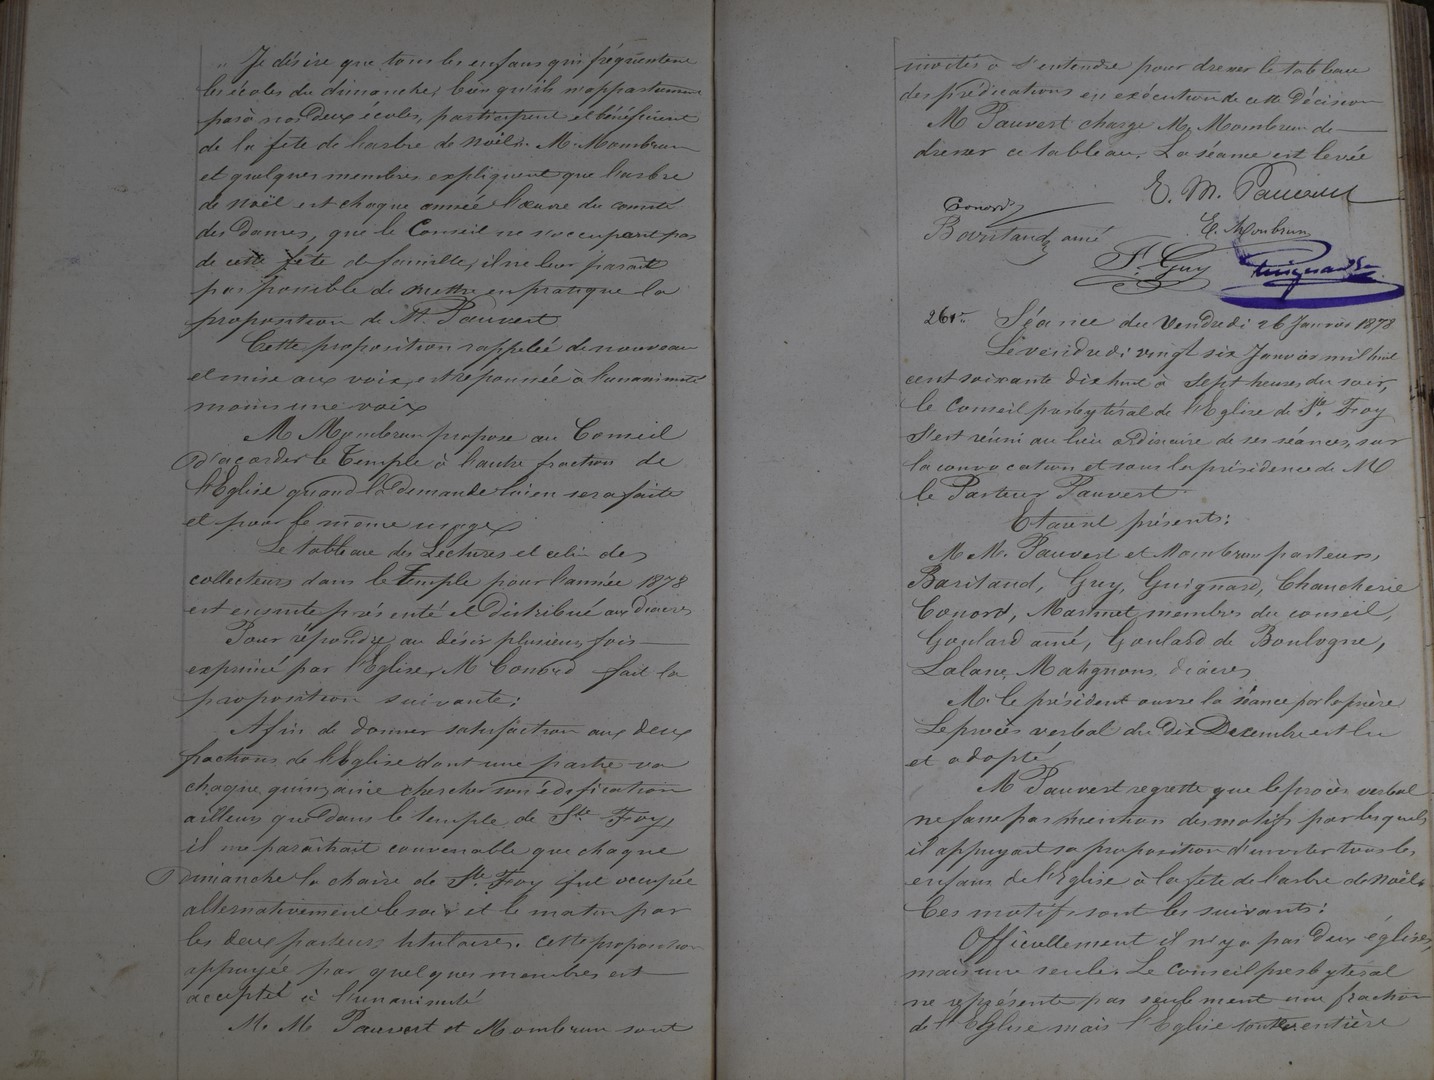 " Je désire que tous les enfans qui fréquentent
les écoles du dimanche, bien qu'ils n'appartiennent
pas à nos deux écoles, participent et bénéficient
de la fête de l'arbre de Noël. M. Mombrun
et quelques membres expliquent que l'arbre
de Noël est chaque année l'œuvre du comité
des Dames, que le Conseil ne s'occupant pas
de cette fête de famille, il ne leur parait
pas possible de mettre en pratique la
proposition de M. Pauvert
Cette proposition rappelée de nouveau
et mise aux voix, est repoussée à l'unanimité
moins une voix
M Mombrun propose au Conseil
d'acorder le Temple à l'autre fraction de
l'Eglise quand la demande lui en sera faite
et pour le même usage
Le tableau des Lectures et celui des
collecteurs dans le Temple pour l'année 1878
est ensuite présenté et distribué aux diacres
Pour répondre au désir plusieurs fois
exprimé par l'Eglise, M Conord fait la
proposition suivante:
Afin de donner satisfaction aux deux
fractions de l'Eglise dont une partie va
chaque quinzaine chercher son édification
ailleurs que dans le temple de Ste Foy,
il me paraîtrait convenable que chaque
dimanche la chaire de Ste Foy fut occupée
alternativement le soir et le matin par
les deux pasteurs titulaires. Cette proposition
appuyée par quelques membres est
accepté à l'unanimité
M. M Pauvert et Mombrun sont
invités à s'entendre pour dresser le tableau
des prédications en exécution de cette décision
M Pauvert charge M. Mombrun de
dresser ce tableau. La séance est levée
E. M. Pauvert
Conord
E. Mombrun
Baritaud ainé
F. Guy Guignard
261e Séance du Vendredi 26 Janvier 1878
Le vendredi vingt six Janvier mil huit
cent soixante dix huit à sept heures du soir,
le Conseil presbytéral de l'Eglise de Ste Foy
s'est réuni au lieu ordinaire de ses séances, sur
la convocation et sous la présidence de M
le Pasteur Pauvert
Etaient présents:
M M. Pauvert et Mombrun pasteurs,
Baritaud, Guy, Guignard, Chaucherie
Conord, membres du conseil,
Goulard ainé, Goulard de Boulogne,
Lalane, Matignons, diacres
M. le président ouvre la séance par la prière
Le procès verbal du dix Decembre est lu
et adopté
M Pauvert regrette que le procès verbal
ne fasse pas mention des motifs par lesquels
il appuyait sa proposition d'inviter tous les
enfans de l'Eglise à la fête de l'arbre de Noël.
Ces motifs sont les suivants:
Officiellement il n'y a pas deux églises,
mais une seule. Le Conseil presbytéral
ne représente pas seulement une fraction
de l'Eglise mais l'Eglise toute entière